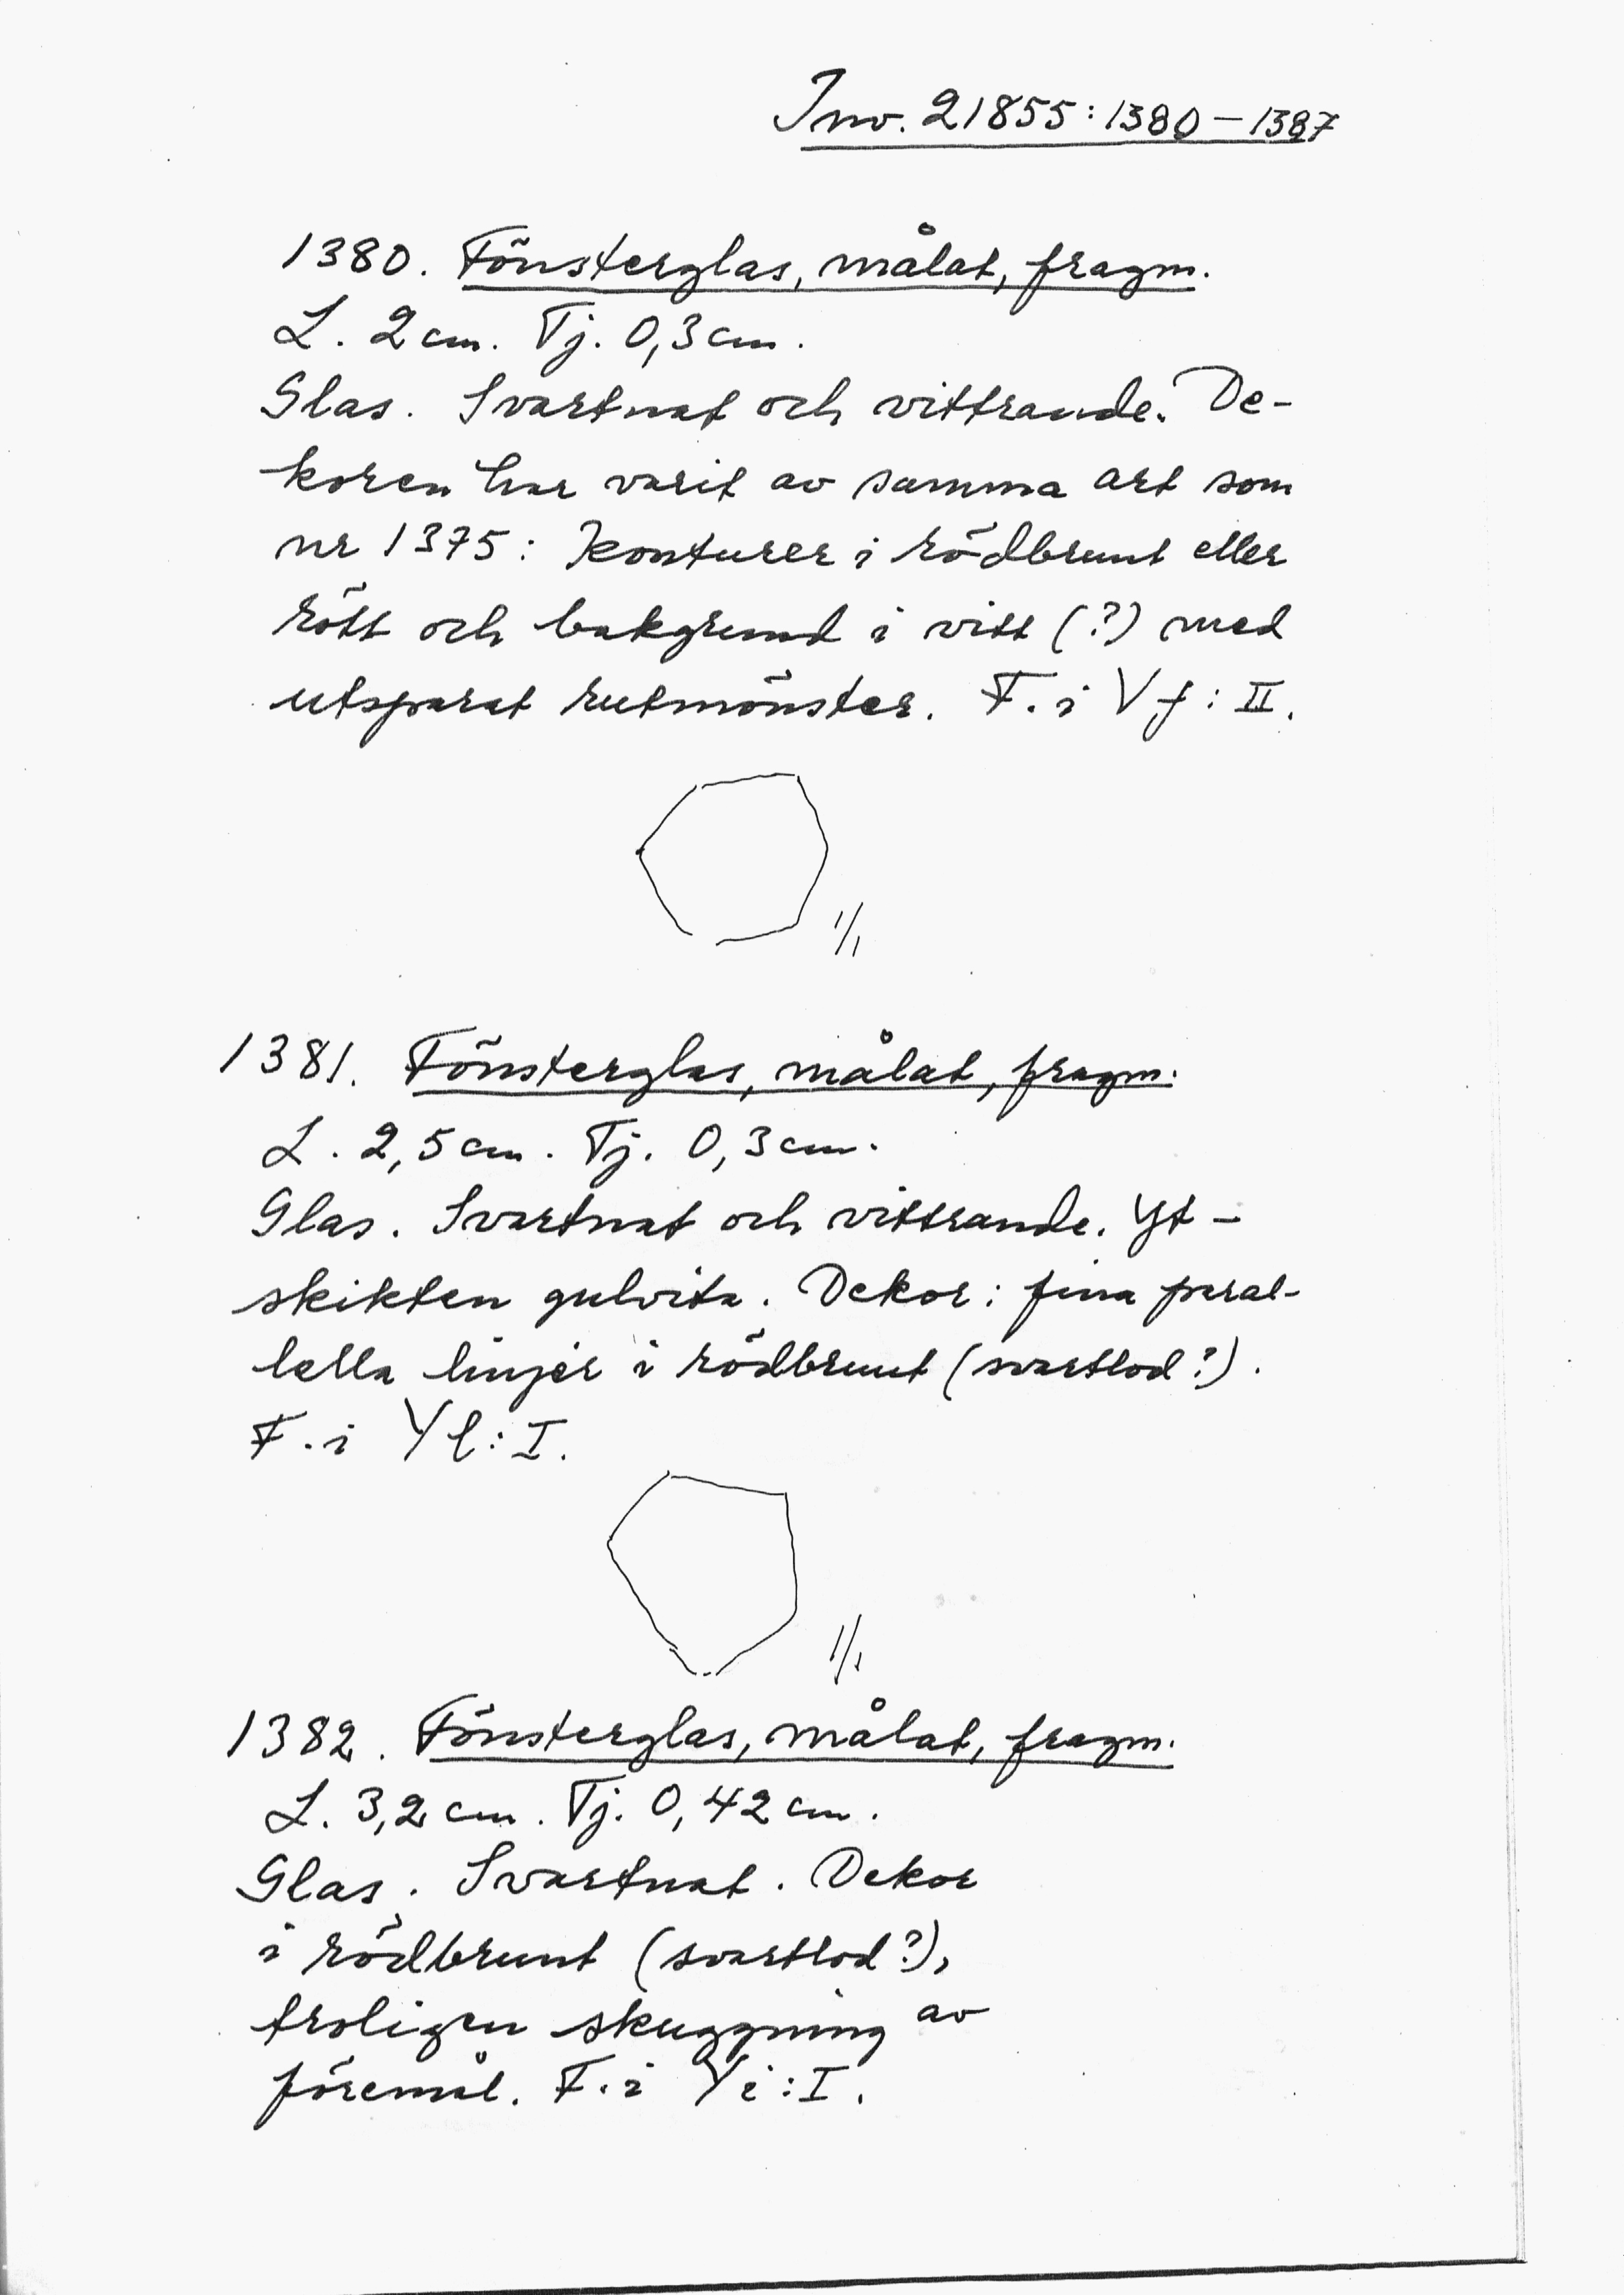 Inv. 21855:1380–1387
1380. Fönsterglas, målat, fragm.
L. 2 cm. Tj. 0,3 cm.
Glas. Svartnat och vittrande. De-
koren har varit av samma art som
nr 1375: Konturer i rödbrunt eller
rött och bakgrund i vitt (?) med
utsparat rutmönster. F. i Vf: II.
1/1
1381. Fönsterglas, målat, fragm.
L. 2,5 cm. Tj. 0,3 cm.
Glas. Svartnat och vittrande. Yt-
skikten gulvita. Dekor: fina paral-
lella linjer i rödbrunt (svartlod?).
F. i Yl: I.
1/1
1382. Fönsterglas, målat, fragm.
L. 3,2 cm. Tj. 0,42 cm.
Glas. Svartnat. Dekor
i rödbrunt (svartlod?),
troligen skuggning av
föremål. F. i Yi: I.